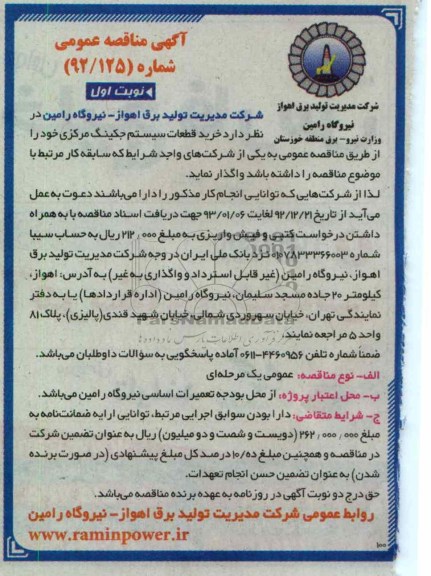 آگهی مناقصه عمومی
شماره (۹۲/۱۲۵)
نوبت اول
شرکت مدیریت تولید برق اهواز
نیروگاه رامین
وزارت نیرو- برق منطقه خوزستان
شرکت مدیریت تولید برق اهواز- نیروگاه رامین در
نظر دارد خرید قطعات سیستم جکینگ مرکزی خود را
از طریق مناقصه عمومی به یکی از شرکت‌های واجد شرایط که سابقه کار مرتبط با
موضوع مناقصه را داشته باشد واگذار نماید.
لذا از شرکت‌هایی که توانایی انجام کار مذکور را دارا می‌باشند دعوت به عمل
می‌آید از تاریخ ۹۲/۱۲/۲۱ لغایت ۹۳/۰۱/۰۶ جهت دریافت اسناد مناقصه با به همراه
داشتن درخواست کتبی و فیش واریزی به مبلغ ۲۱۲,۰۰۰ ریال به حساب سیبا
شماره ۰۱۰۷۸۳۳۳۶۶۰۰۳ نزد بانک ملی ایران در وجه شرکت مدیریت تولید برق
اهواز، نیروگاه رامین (غیر قابل استرداد و واگذاری به غیر) به آدرس: اهواز،
کیلومتر ۲۰ جاده مسجد سلیمان، نیروگاه رامین (اداره قراردادها) یا به دفتر
نمایندگی تهران، خیابان سهروردی شمالی، خیابان شهید قندی (پالیزی)، پلاک ۸۱
واحد ۵ مراجعه نمایند.
ParsNamadData
ضمناً شماره تلفن ۴۴۶۰۹۵۶-۰۶۱۱ آماده پاسخگویی به سؤالات داوطلبان می‌باشد.
الف- نوع مناقصه: عمومی یک مرحله‌ای
ب- محل اعتبار پروژه: از محل بودجه تعمیرات اساسی نیروگاه رامین می‌باشد.
ج- شرایط متقاضی: دارا بودن سوابق اجرایی مرتبط، توانایی ارایه ضمانتنامه به
مبلغ ۲۶۲,۰۰۰,۰۰۰ (دویست و شصت و دو میلیون) ریال به عنوان تضمین شرکت
در مناقصه و همچنین مبلغ ده/۱۰ درصد کل مبلغ پیشنهادی (در صورت برنده
شدن) به عنوان تضمین حسن انجام تعهدات.
حق درج دو نوبت آگهی در روزنامه به عهده برنده مناقصه می‌باشد.
روابط عمومی شرکت مدیریت تولید برق اهواز- نیروگاه رامین
www.raminpower.ir